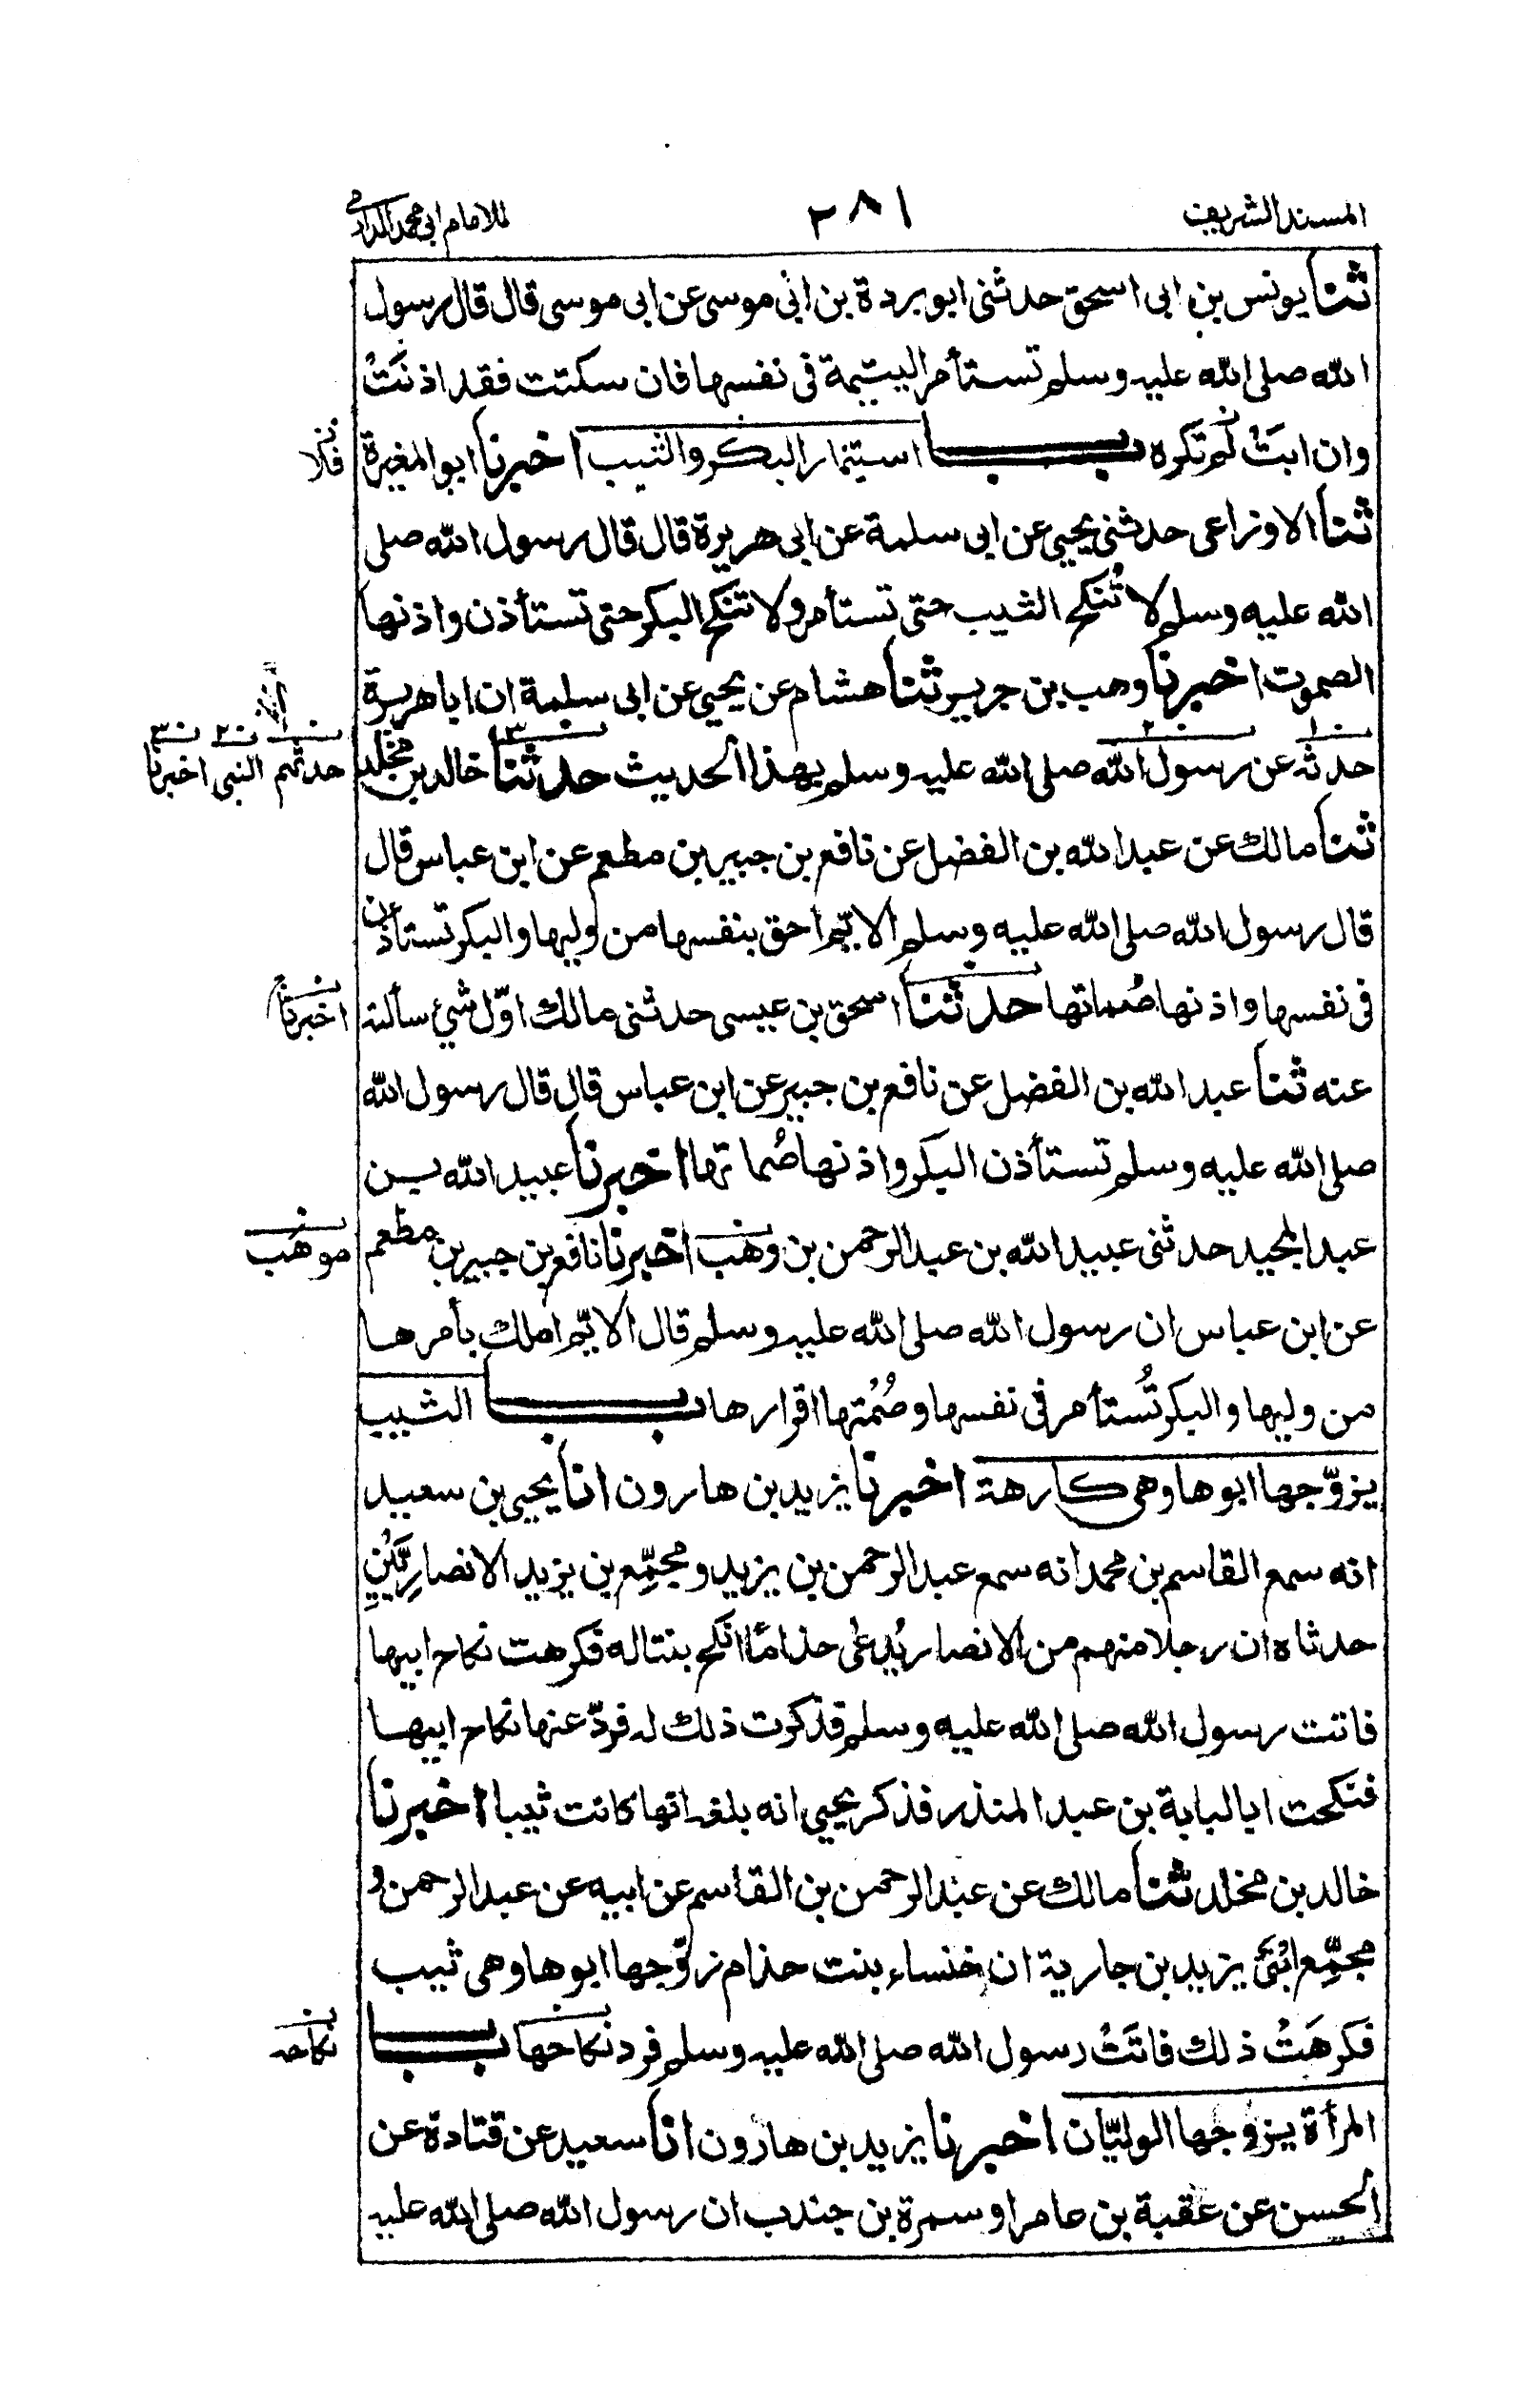 المسند الشريف
٢٨١
للامام ابى محمد الدارمى
ثنا يونس بن ابى اسحق حدثنى ابو بردة بن ابى موسى عن ابى موسى قال قال رسول
الله صلى الله عليه وسلم تستأمر اليتيمة فى نفسها فان سكتت فقد اذنَتْ
وان ابَتْ لم تكره باب استيمار البكر والثيب اخبرنا ابو المغيرة
فلا
ثنا الاوزاعى حدثنى يحيى عن ابى سلمة عن ابى هريرة قال قال رسول الله صلى
الله عليه وسلم لا تُنكح الثيب حتى تستأمر ولا تنكح البكر حتى تستأذن واذنها
الصموت اخبرنا وهب بن جرير ثنا هشام عن يحيى عن ابى سلمة ان ابا هريرة
حدثه عن رسول الله صلى الله عليه وسلم بهذا الحديث حدثنا خالد بن مخلد
حدثهم النبى اخبرنا
ثنا مالك عن عبد الله بن الفضل عن نافع بن جبير بن مطعم عن ابن عباس قال
قال رسول الله صلى الله عليه وسلم الايّم احق بنفسها من وليها والبكر تستأذن
فى نفسها واذنها صُماتها حدثنا اسحق بن عيسى حدثنى مالك اوّل شئ سألته
اخبرنا
عنه ثنا عبد الله بن الفضل عن نافع بن جبير عن ابن عباس قال قال رسول الله
صلى الله عليه وسلم تستأذن البكر واذنها صُماتها اخبرنا عبيد الله بن
عبد المجيد حدثنى عبيد الله بن عبد الرحمن بن وهب اخبرنا نافع بن جبير بن مطعم
موهَب
عن ابن عباس ان رسول الله صلى الله عليه وسلم قال الايّم املك بأمرها
من وليها والبكر تُستأمر فى نفسها وصُمتها اقرارها باب الثيب
يزوّجها ابوها وهى كارهة اخبرنا يزيد بن هارون انا يحيى بن سعيد
انه سمع القاسم بن محمد انه سمع عبد الرحمن بن يزيد ومجمِّع بن يزيد الانصاريَّيْنِ
حدثاه ان رجلا منهم من الانصار يُدعى حذامًا انكح بنتا له فكرهت نكاح ابيها
فاتت رسول الله صلى الله عليه وسلم فذكرت ذلك له فردّ عنها نكاح ابيها
فنكحت ابا لبابة بن عبد المنذر فذكر يحيى انه بلغه انها كانت ثيبا اخبرنا
خالد بن مخلد ثنا مالك عن عبد الرحمن بن القاسم عن ابيه عن عبد الرحمن و
مجمِّع ابْنَىْ يزيد بن جارية ان خنساء بنت حذام زوّجها ابوها وهى ثيب
فكرهَتْ ذلك فاتَتْ رسول الله صلى الله عليه وسلم فرد نكاحها باب
نكاحه
المرأة يزوجها الوليّان اخبرنا يزيد بن هارون انا سعيد عن قتادة عن
الحسن عن عقبة بن عامر او سمرة بن جندب ان رسول الله صلى الله عليه